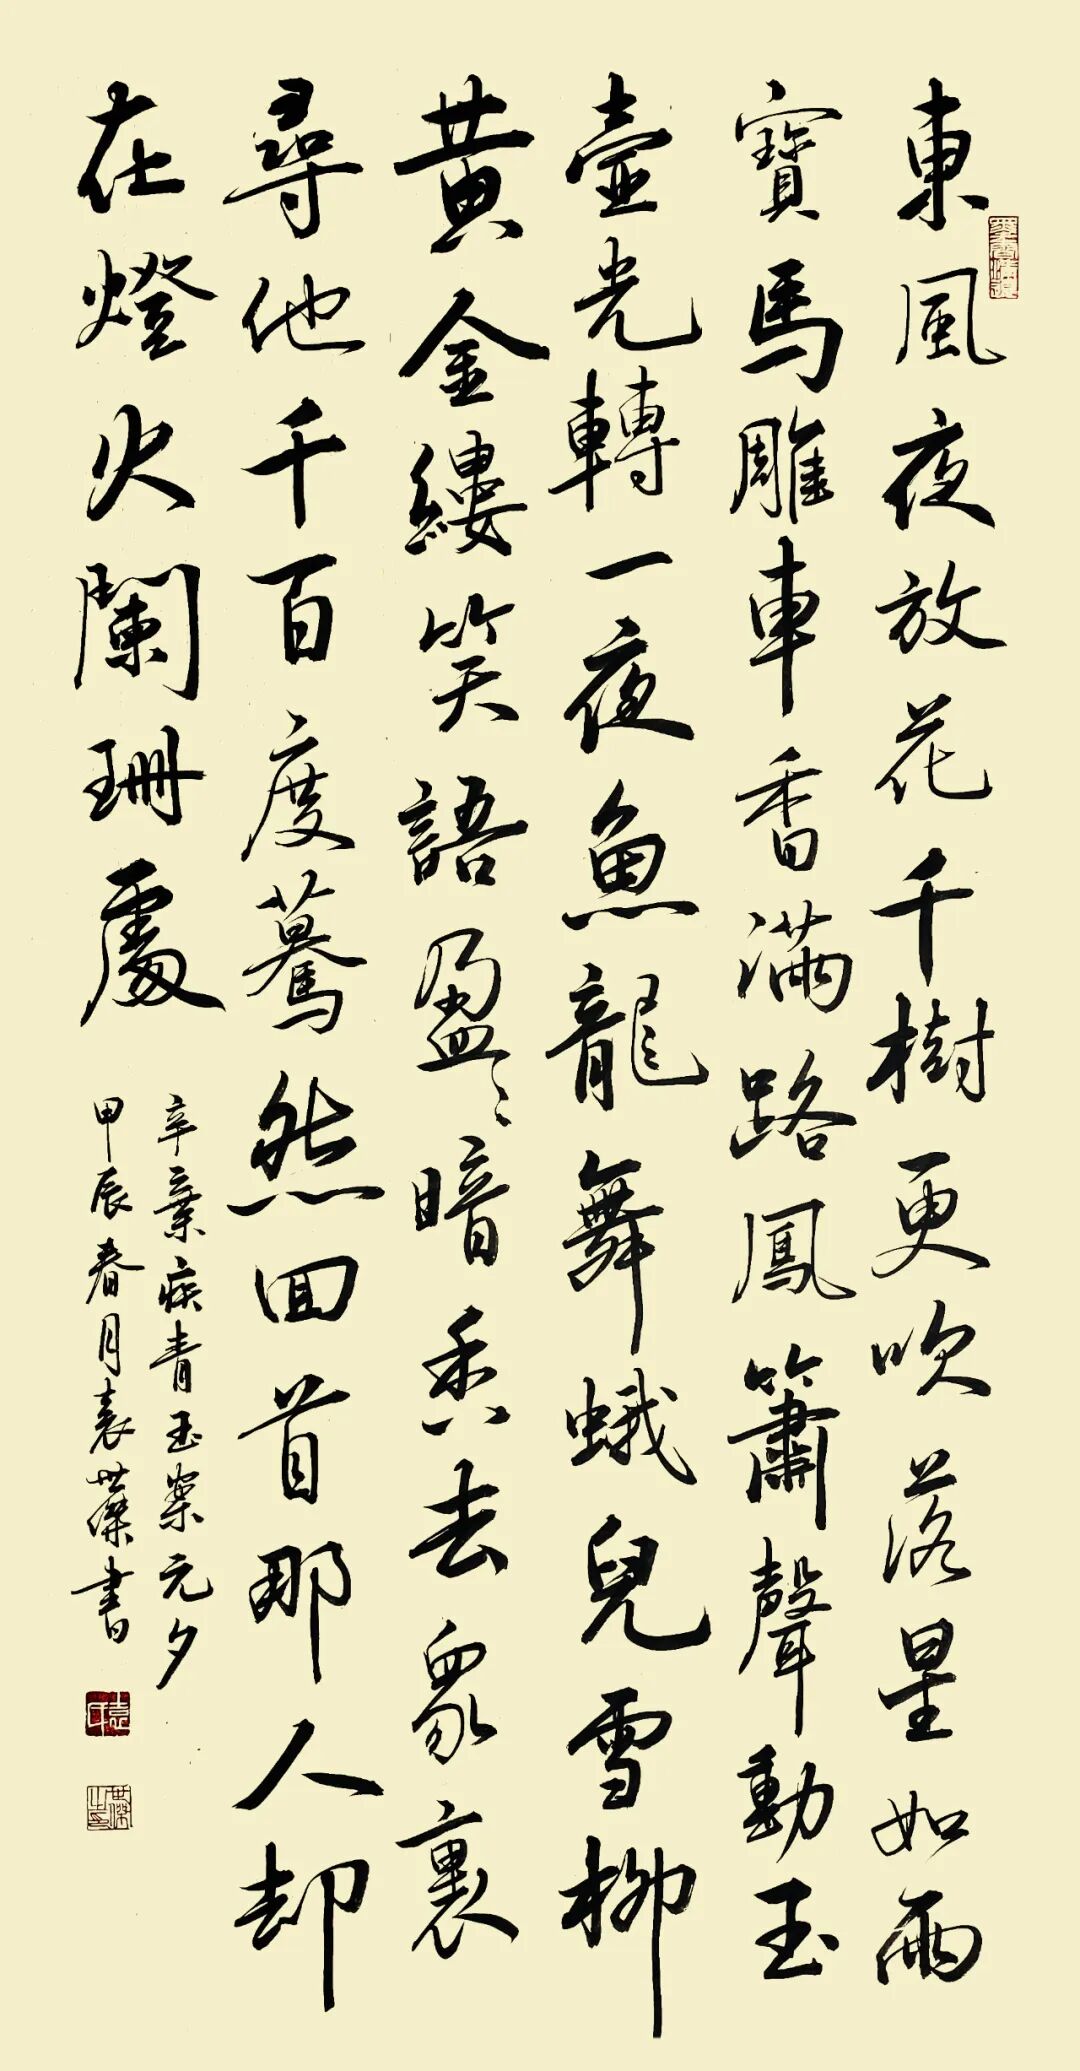 東風夜放花千樹更吹落星如雨
寶馬雕車香滿路鳳簫聲動玉
壺光轉一夜魚龍舞蛾兒雪柳
黄金縷笑語盈〻暗香去衆裏
尋他千百度驀然回首那人却
在燈火闌珊處
辛棄疾青玉案元夕
甲辰春月袁世傑書